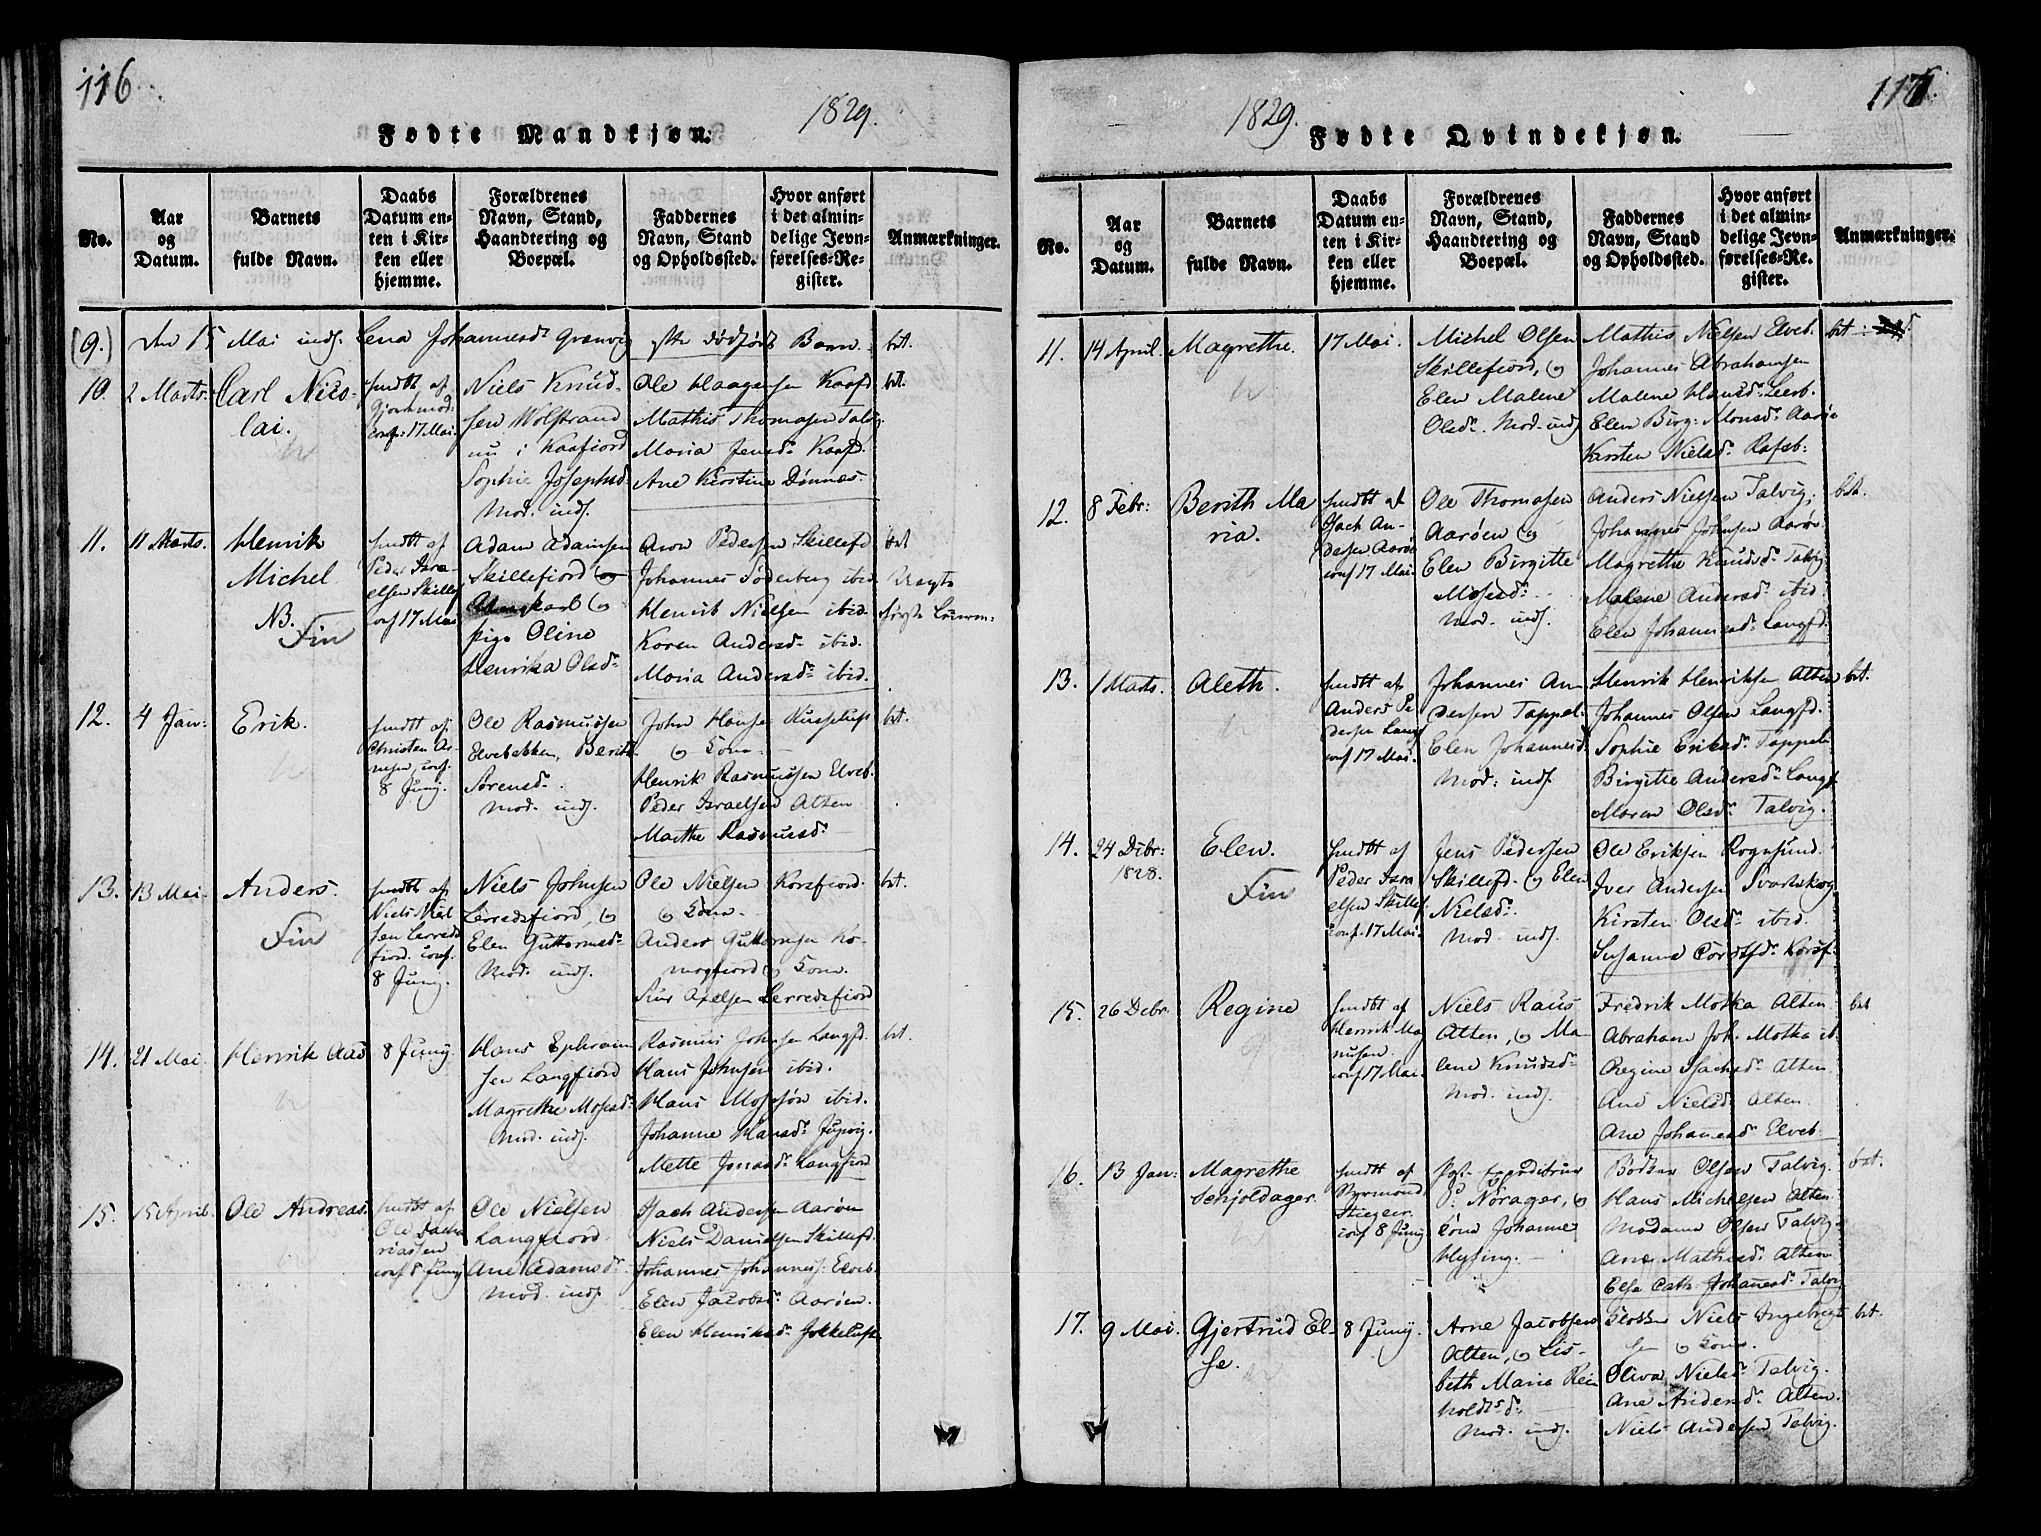 116
1829.
Fødte Mandkjøn.
No.
Aar
og
Datum.
Barnets
fulde Navn.
Daabs
Datum en-
ten i Kir-
ken eller
hjemme.
Forældrenes
Navn, Stand,
Haandtering og
Boepæl.
Faddernes
Navn, Stand
og Opholdssted.
Hvor anført
i det almin-
delige Jevn-
førelses-Re-
gister.
Anmærkninger.
(9.) den 15 Mai inds. Lena Johannesd. Grønvig dødfødt Barn. bet.
10. 2 Marts.
Carl Nico-
lai.
hmdbt af
conf: 17 Mai.
Niels Knud-
sen Wolfstrand
nu i Kaafiord
Sophie Josephsd.
Mod. inds.
Ole Haagensen Kaafd.
Mathis Thomasen Talv.
Maria Jensd. Kaafd.
Ane Kirstine Dønnes.
bet.
11. 11 Marts.
Henrik
Michel
NB.
Fin
hmdbt af
Peder Isra-
elsen Skillef
conf 17 Mai
Adam Adamsen
Skillefiord og
pige Oline
Henrika Olsd.
Aron Pedersen Skillefd
Johannes Søderberg ibid.
Henrik Nielsen ibid.
Karen Andersd. ibid.
Maria Andersd. ibid.
bet
Uægte
første
12. 4 Jan:
Erik.
hmdbt af
Christen Ar-
nesen conf.
8 Junij.
Ole Rasmussen
Elvebakken, Berith
Sørensd.
Mod. inds.
John Hansen
og Kone.
Henrik Rasmussen Elveb.
Peder Israelsen Alten
Marthe Rasmusd.
bet.
13. 13 Mai.
Anders.
Fin
hmdbt af
Niels Niel
sen Lerreds
fiord. conf.
8 Junij.
Niels Johnsen
Lerredsfiord, og
Elen Guttormsd.
Mod. inds.
Ole Nielsen Korsfiord.
og Kone.
Anders Guttormsen Ko-
magfiord og Kone.
Siur Axelsen Lerredsfiord
bet.
14. 21 Mai.
Henrik Aas
8 Junij.
Hans Ephraim
sen Langfiord
Magrethe Mosesd.
Mod. inds.
Rasmus Johnsen Langfd.
Hans Johnsen ibid.
Hans Mossesøn ibid.
Johanne Hansd.
Mette Jonasd. Langfiord
bet.
15. 15 April.
Ole Andreas.
hmdbt af
Ole Zacha
riassen
conf 8 Junij
Ole Nielsen
Langfiord.
Ane Adamsd.
Mod. inds.
Isach Andersen Aarøen
Niels Danielsen Skillefd.
Johannes Johannes: Elveb.
Elen Jacobsd. Aarøen.
Elen Henriksd. Jokkeluft
117.
1829.
Fødte Qvindekjøn.
No.
Aar
og
Datum.
Barnets
fulde Navn.
Daabs
Datum en-
ten i Kir-
ken eller
hjemme.
Forældrenes
Navn, Stand,
Haandtering og
Boepæl.
Faddernes
Navn, Stand
og Opholdssted.
Hvor anført
i det almin-
delige Jevn-
førelses-Re-
gister.
Anmærkninger.
11. 14 April.
Magrethe.
17 Mai.
Michel Olsen
Skillefiord, og
Elen Malene
Olsd. Mod. inds
Mathis Nielsen Elveb.
Johannes Abrahamsen
Malene Hansd. Leerb.
Elen Birg: Monsd. Aarøe
Karsten Nielsd. Rafsb:
bet.
12. 8 Febr:
Berith Ma
ria.
hmdbt af
Isach An-
dersen Aarøe
conf 17 Mai.
Ole Thomasen
Aarøen og
Elen Birgitte
Mosesd.
Mod. inds.
Anders Nielsen Talvig.
Johannes Johnsen Aarøe
Magrethe Knudsd. Talvig
Malene Andersd. ibid.
Elen Johannesd. Langfd.
bet.
13. 1 Marts.
Aleth.
hmdbt af
Anders Pe
dersen Langf
conf 17 Mai.
Johannes An
dersen Tappel.
Elen Johannesd.
Mod: inds.
Henrik Henriksen Alten
Johannes Olsen Langfd.
Sophie Eriksd. Tappel.
Birgitte Andersd. Langf
Maren Olsd. Talvig.
bet.
14. 24 Debr:
1828.
Elen.
Fin
hmdbt af
Peder Isra
elsen Skillef.
conf. 17 Mai.
Jens Pedersen
Skillefd. og Elen
Nielsd.
Mod. inds.
Ole Eriksen Rognsund.
Iver Andersen Svartskog
Kirsten Olsd. ibid.
Susanna Cordtsd. Korsf.
15. 26 Debr.
Regine
hmdbt af
Henrik Mag
nusen
conf 17 Mai.
Niels Raus
Alten, og Ma-
lene Knudsd.
Mod. inds.
Fredrik Motka Alten.
Abraham Joh. Motka ib.
Regine Isachsd. Alten.
Ane Nielsd. Alten.
Ane Johannesd. Elveb.
bet
16. 13 Jan:
Magrethe
Schjoldager.
hmdbt af
Normand
Stieger.
conf 8 Junij.
Pgt. Expeditrur
P. Nørager, og
Kone Johanne
Hysing.
Bødker Olsen Talvig.
Hans Michelsen Alten.
Madame Olsen Talvig.
Ane Mathisd. Alten.
Else Cath. Johannesd. Talvig
bet.
17. 9 Mai.
Gjertrud El-
se.
8 Junij.
Arne Jacobsen
Alten, og Lis-
beth Maria Rein
holdts d.
Mod. inds.
Klokker Niels Ingebrigt
sen og Kone.
Oliva Nielsd. Talvig.
Ane Andersd. Alten.
Niels Andersen Talvig.
bet.